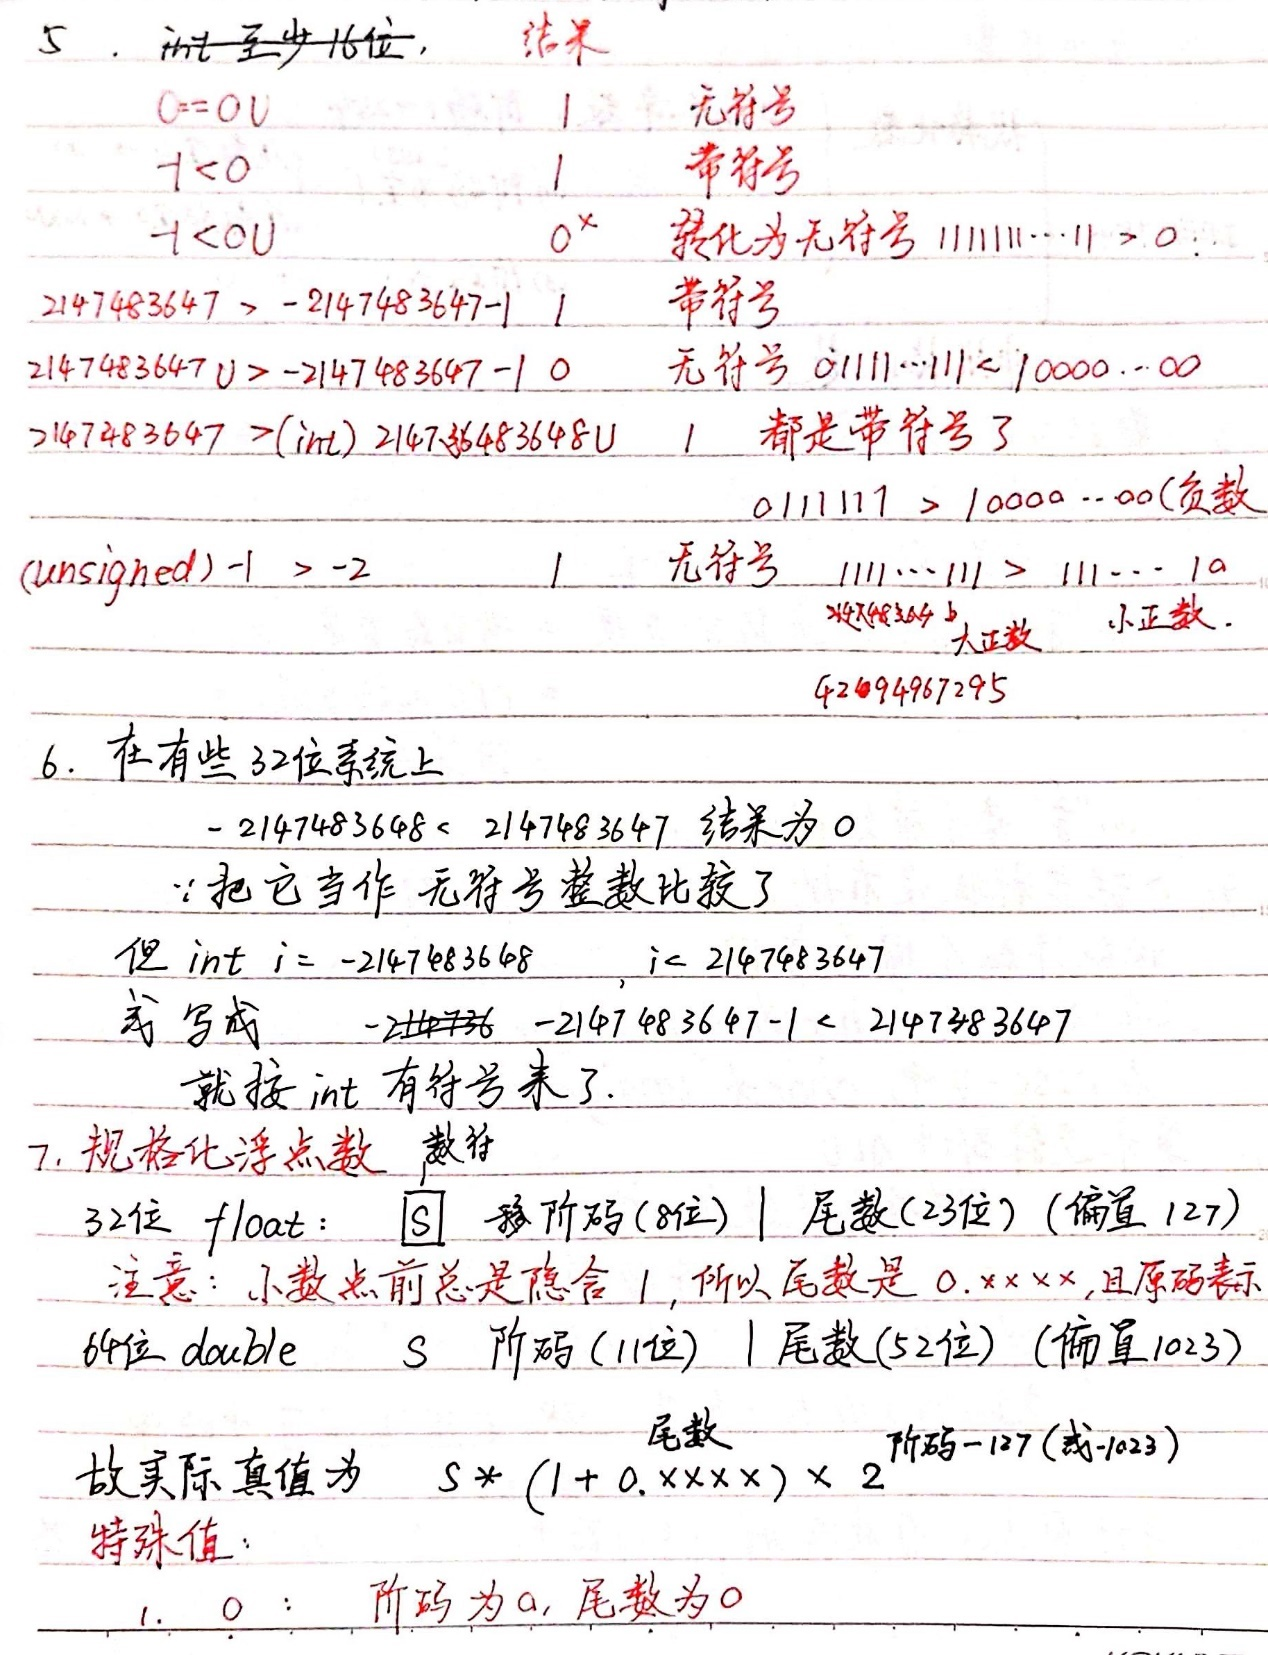 5. int 至少16位, 结果
0==0U 1 无符号
-1<0 1 带符号
-1<0U 0* 转化为无符号 11111111…11 > 0.
2147483647 > -2147483647-1 1 带符号
2147483647U > -2147483647-1 0 无符号 01111…111 < 10000…00
2147483647 >(int) 2147483648U 1 都是带符号了
0111111 > 10000…00(负数
(unsigned)-1 > -2 1 无符号 1111…111 > 111…10
大正数 小正数.
4294967295
6. 在有些32位系统上
-2147483648 < 2147483647 结果为0
∵把它当作 无符号整数比较了
但 int i = -2147483648, i < 2147483647
或写成 -214736 -2147483647-1 < 2147483647
就按 int 有符号来了.
7. 规格化浮点数 数符
32位 float: S 阶码(8位) | 尾数(23位) (偏置127)
注意: 小数点前总是隐含1,所以尾数是 0.××××,且原码表示
64位 double S 阶码(11位) | 尾数(52位) (偏置1023)
尾数 阶码-127(或-1023)
故实际真值为 S*(1+0.××××)×2
特殊值:
1. 0: 阶码为0, 尾数为0